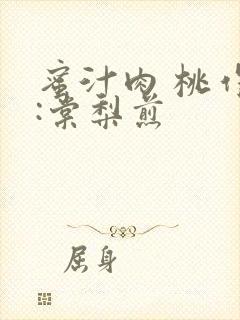 蜜汁肉桃作
:棠梨煎
屈身